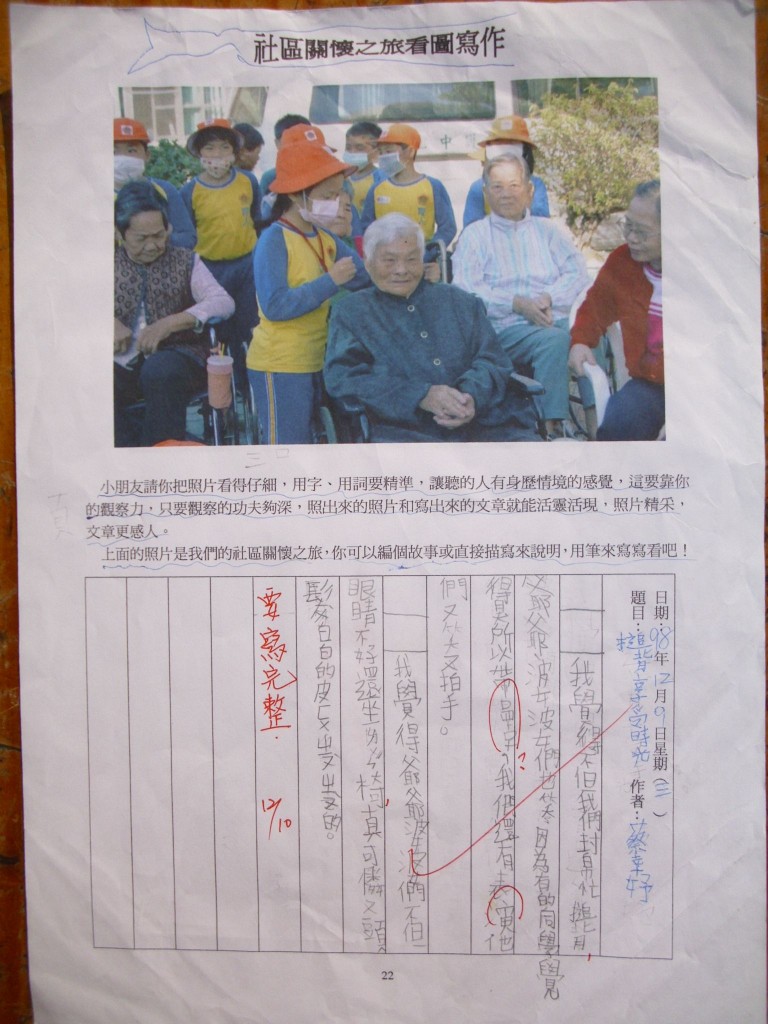 社區關懷之旅看圖寫作
中
小朋友請你把照片看得仔細，用字、用詞要精準，讓聽的人有身歷情境的感覺，這要靠你
的觀察力，只要觀察的功夫夠深，照出來的照片和寫出來的文章就能活靈活現，照片精采，
文章更感人。
上面的照片是我們的社區關懷之旅，你可以編個故事或直接描寫來說明，用筆來寫寫看吧！
日期：98年12月9日星期（三）
題目：搥背享受時光 作者：蔡
我覺得不但我們幫忙搥背，
爺爺波波們也笑 因為有的同學覺
得累所以
我們還有表演他
們又笑又拍手。
我覺得爺爺波波們不但
眼睛不好還坐 真可憐又頭
髮白白的皮反皮皮的。
要寫完整.
12/10
22